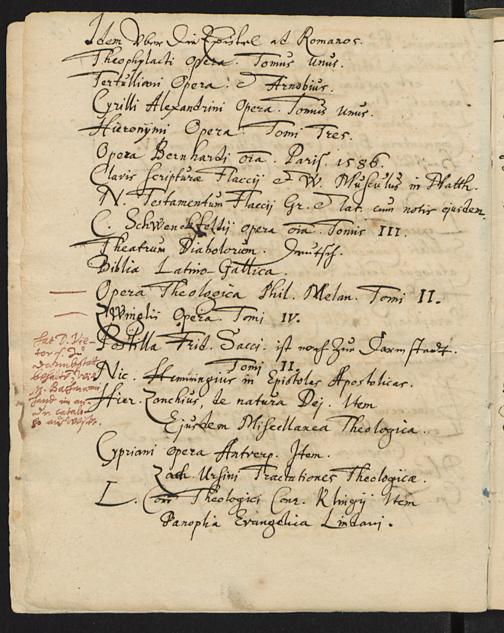 Idem Vber die Epistel ad Romanos.
Theophylacti Opera. Tomus Unus.
Tertulliani Opera. & Arnobius.
Cyrilli Alexandrini Opera. Tomus Unus.
Hieronymi Opera Tomi Tres.
Opera Bernhardi oīa. Parisˢ 1586.
Clavis Scripturæ Flaccij & W. Musculus in Matth.
N. Testamentum Flaccij Gr. & lat. cum notis ejusdem
C. Schwenckfeltij opera oīa. Tomis III.
Theatrum Diabolorum. Deutsch.
Biblia Latino-Gallica.
Opera Theologica Phil. Melan. Tomi II.
Zwinglii Opera Tomi IV.
Postilla Frid. Sacci. ist noch zu Darmstadt.
Tomi II.
Nic. Hemmingius in Epistolas Apostolicas.
Hier. Zanchius, de natura Dej. Item
Ejusdem Miscellanea Theologica.
Cypriani opera Antverp. Item.
Zach. Ursini Tractationes Theologicæ.
L. Theologici Conr. Klingij Item
Panoplia Evangelica Lindani.
hat D. Vie-
tor